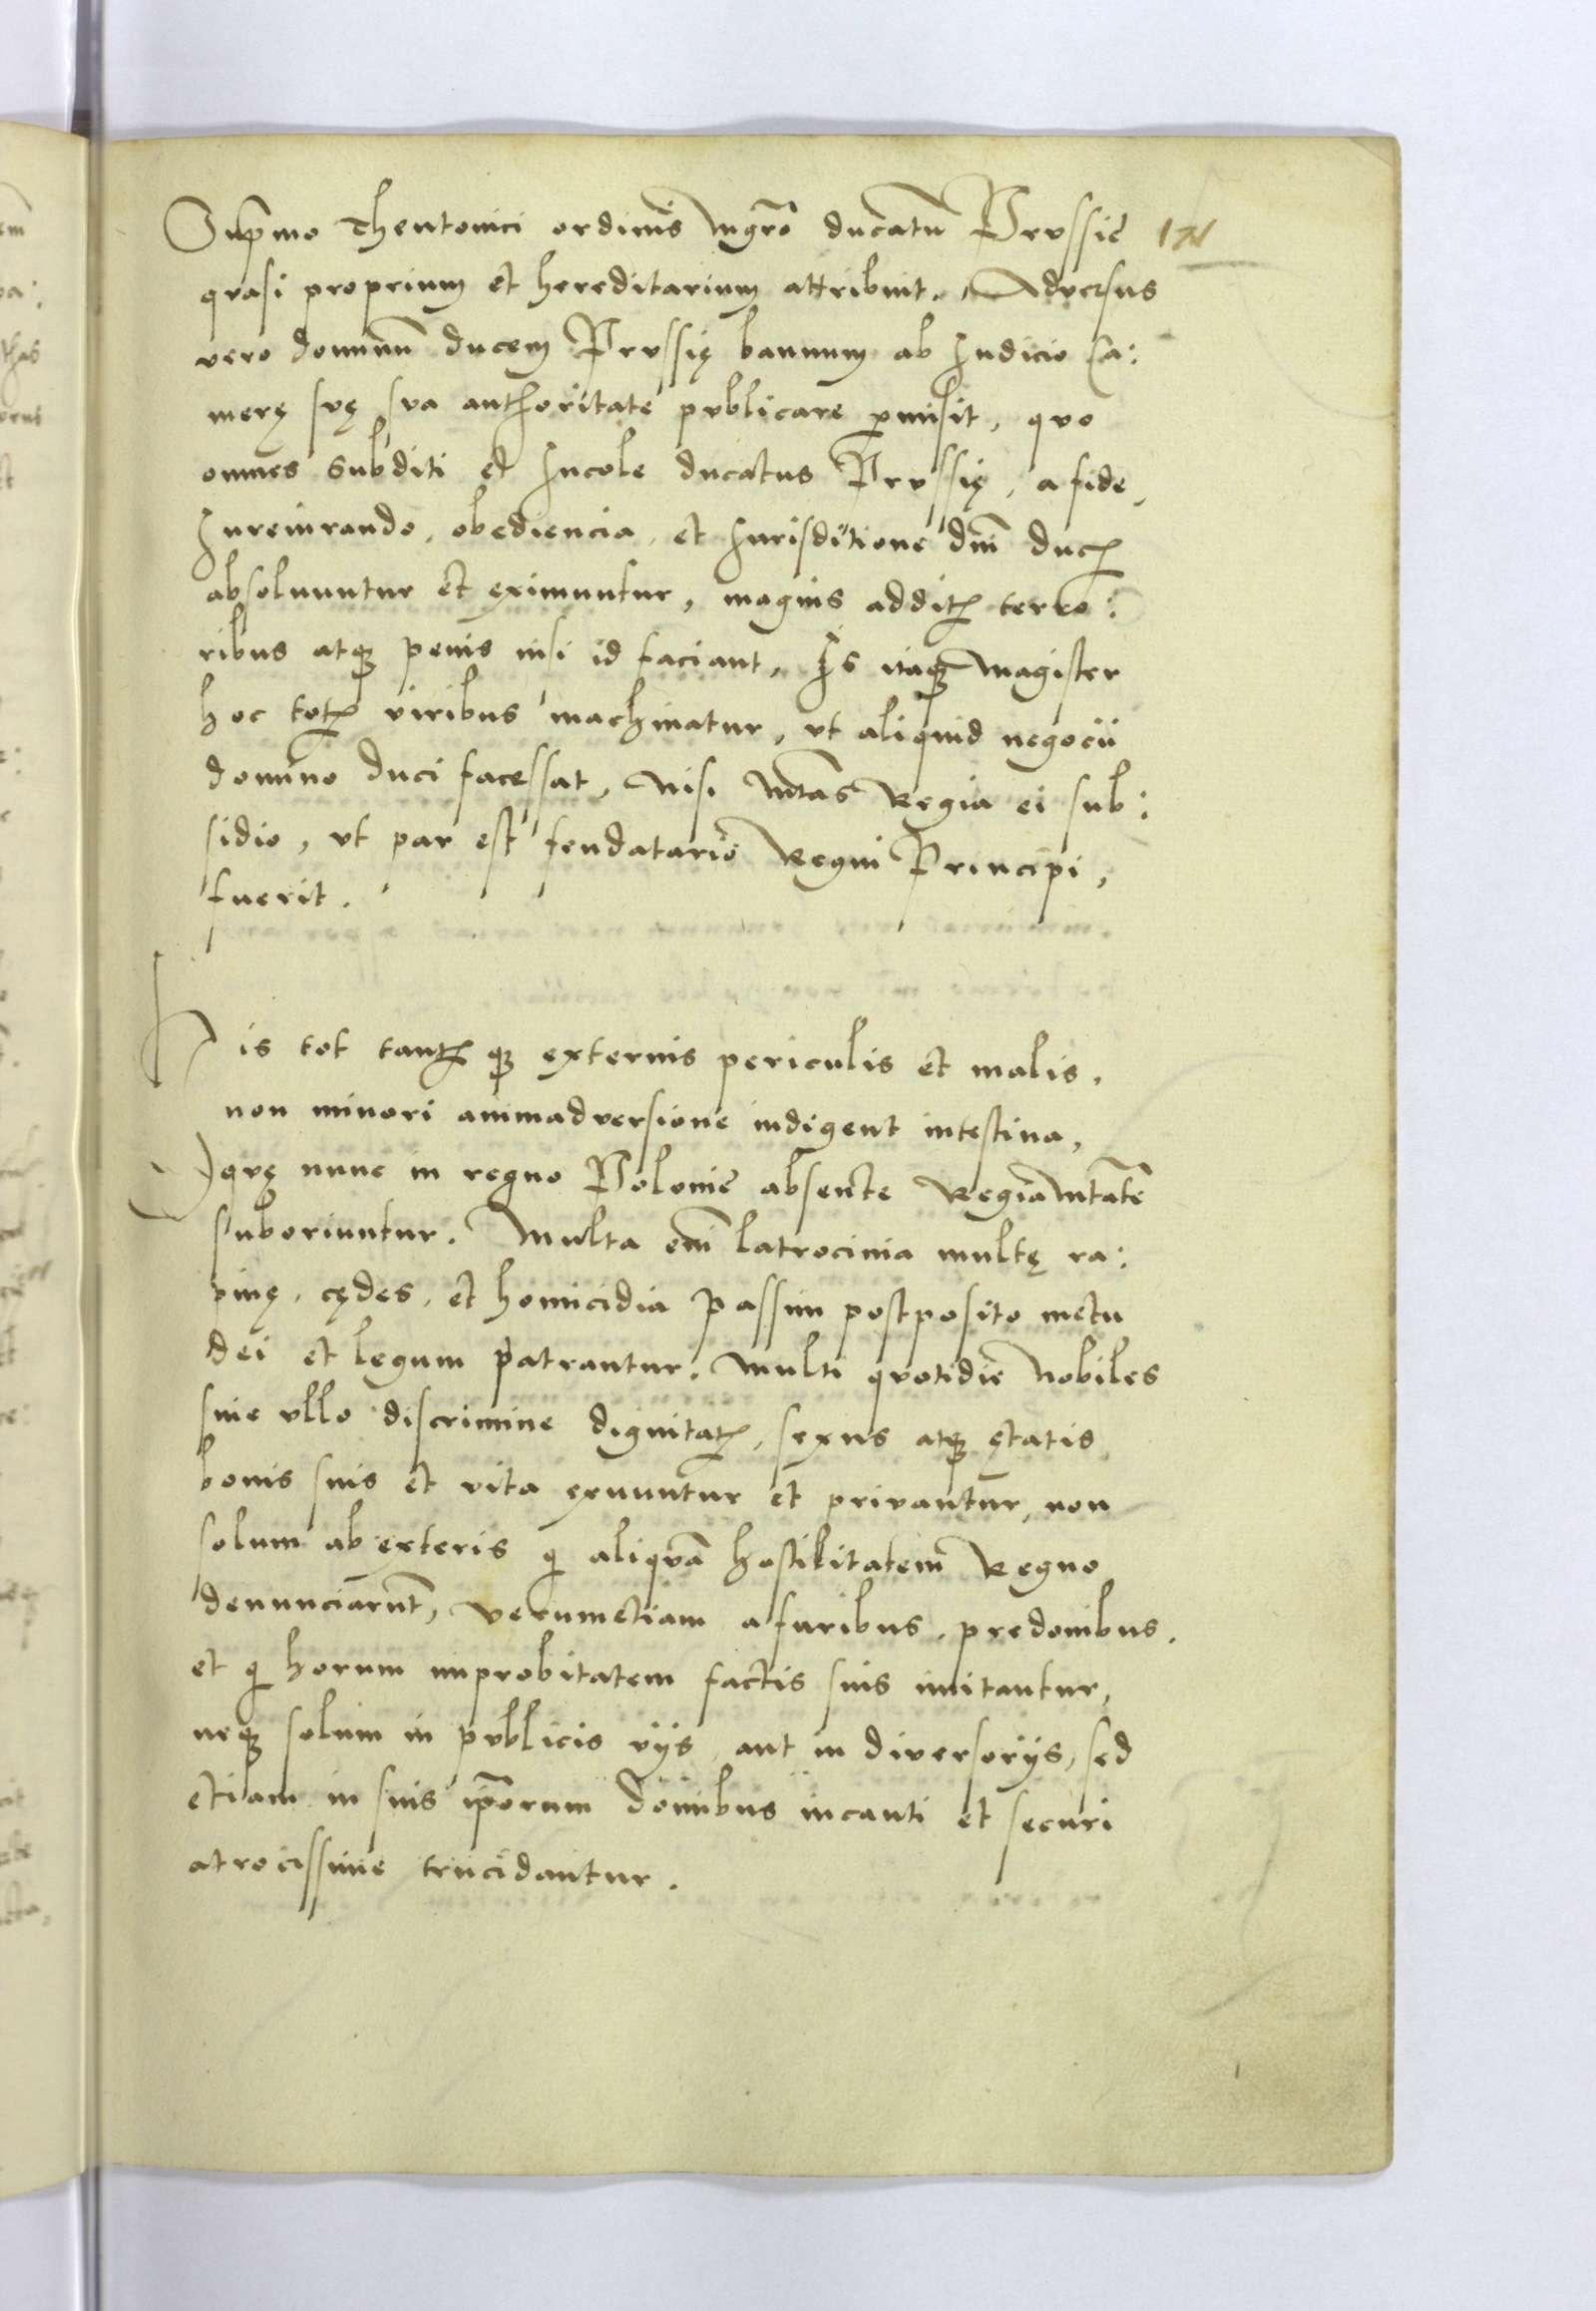 Supmo Theutonici ordinis Mgrō ducatū Prvssiē
qvasi proprium et hereditarium attribuit. Adversus
vero dominū ducem Prvssię bannum ab Iudicio Ca:
merę svę sva authoritate pvblicare pmisit, qvo
omnes Subditi et Incole ducatus Prvssię, a fide,
Iureiurando, obediencia, et Iurisditione dnī ducis
absoluuntur et eximuntur, magnis additis terro:
ribus atque penis nisi id faciant. Is itaque Magister
hoc totis viribus machinatur, vt aliquid negocii
domino duci facessat, Nisi Mtas Regia ei sub:
sidio, vt par est feudatario Regni Principi,
fuerit.
His tot tantisque externis periculis et malis,
non minori animadversione indigent intestina,
qvę nunc in regno Polonie absente Regia Mtate
suboriuntur. Multa enī latrocinia multę ra:
pinę, cędes, et homicidia passim postposito metu
dei et legum patrantur. Multi qvotidie Nobiles
sine vllo discrimine dignitatis, sexus atque ętatis
bonis suis et vita exuuntur et privantur, non
solum ab exteris qi aliqvā hostilitatem Regno
denunciarūt, verumetiam a furibus, predonibus,
et qi horum improbitatem factis suis imitantur,
neque solum in pvblicis vijs, aut in diversorijs, sed
etiam in suis ipsorum domibus incauti et securi
atrocissime trucidantur.